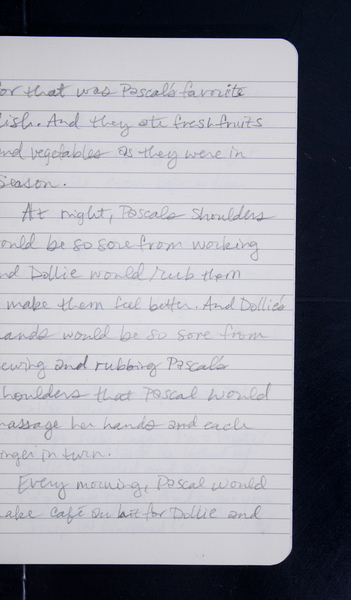 or that was Pascal's favorite
ish. And they ate fresh fruits
nd vegetables as they were in
season.
At night, Pascals shoulders
ould be so sore from working
nd Dollie would rub them
make them feel better. And Dollie's
ands would be so sore from
ewing and rubbing Pascal's
houlders that Pascal would
assage her hands and each
inger in turn.
Every morning, Pascal would
ake café au lait for Dollie and